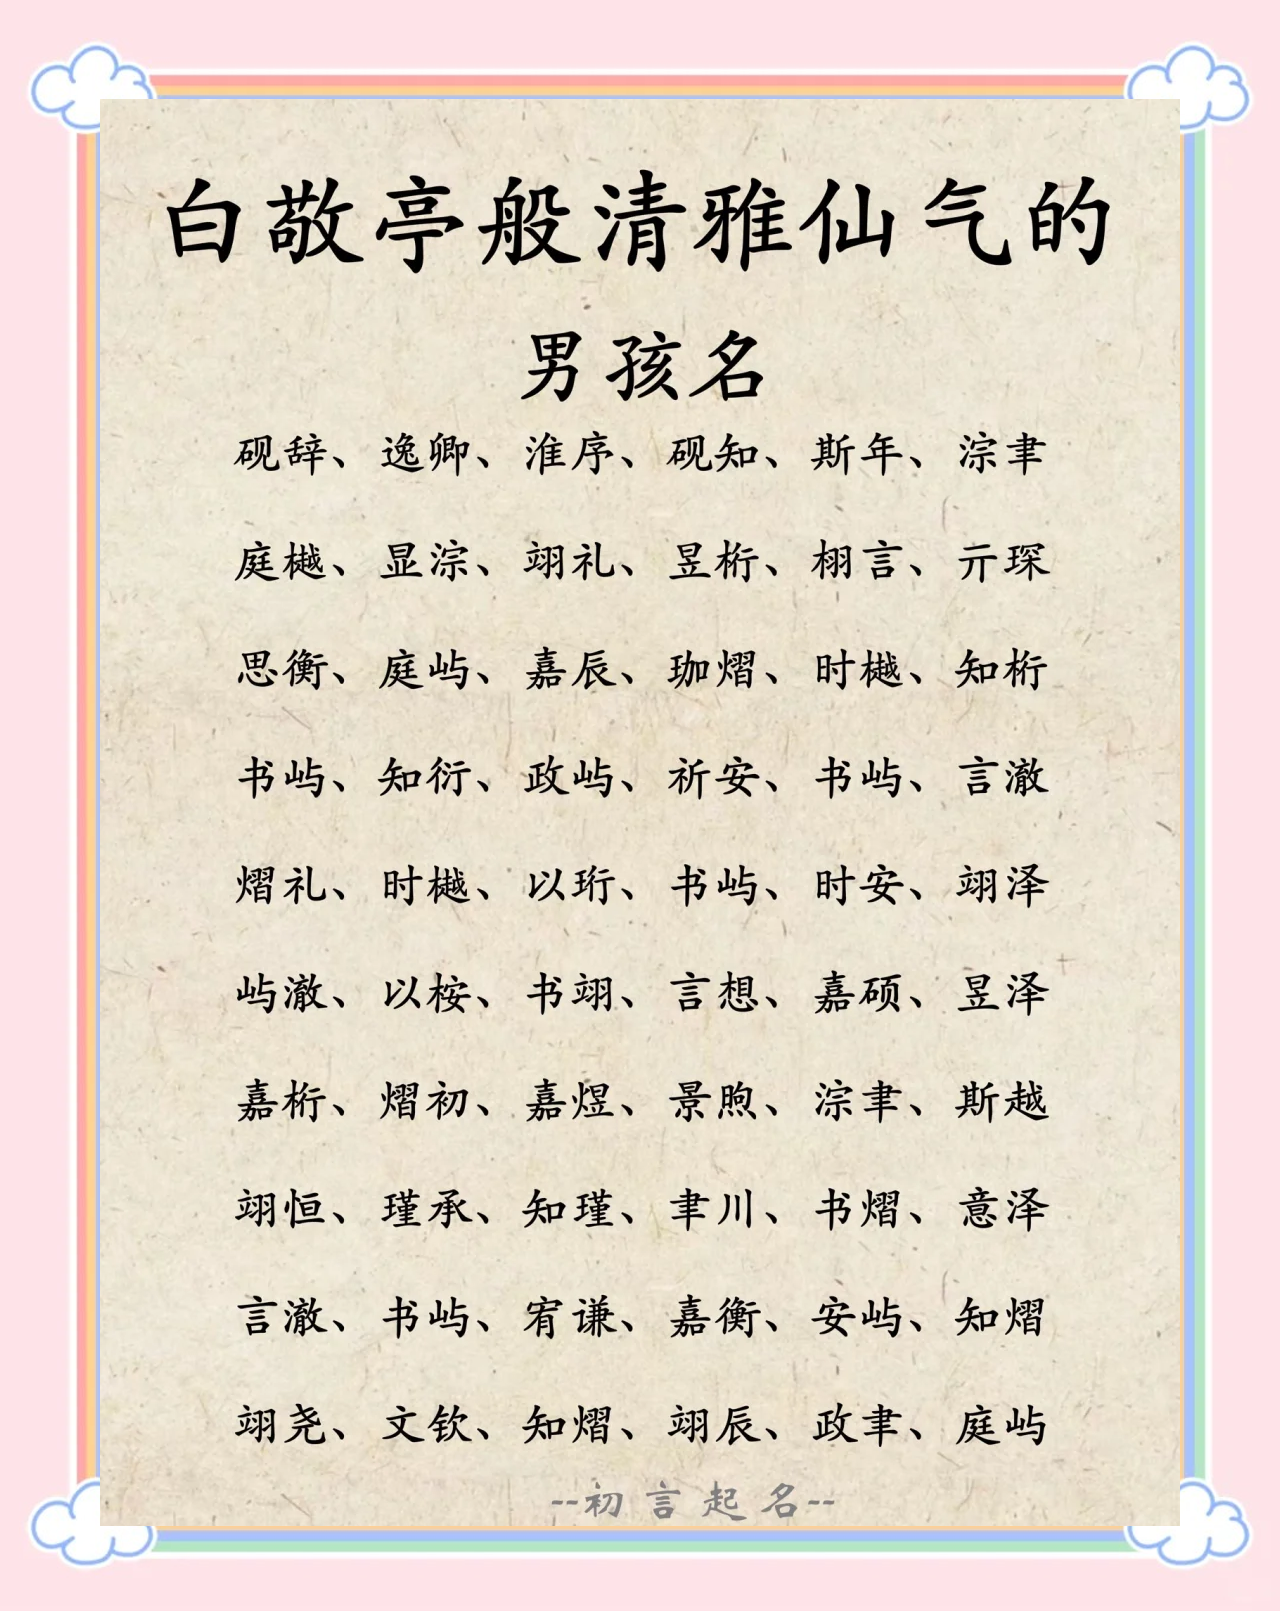 白敬亭般清雅仙气的
男孩名
砚辞、逸卿、淮序、砚知、斯年、淙聿
庭樾、显淙、翊礼、昱桁、栩言、亓琛
思衡、庭屿、嘉辰、珈熠、时樾、知桁
书屿、知衍、政屿、祈安、书屿、言澈
熠礼、时樾、以珩、书屿、时安、翊泽
屿澈、以桉、书翊、言想、嘉硕、昱泽
嘉桁、熠初、嘉煜、景煦、淙聿、斯越
翊恒、瑾承、知瑾、聿川、书熠、意泽
言澈、书屿、宥谦、嘉衡、安屿、知熠
翊尧、文钦、知熠、翊辰、政聿、庭屿
--初言起名--